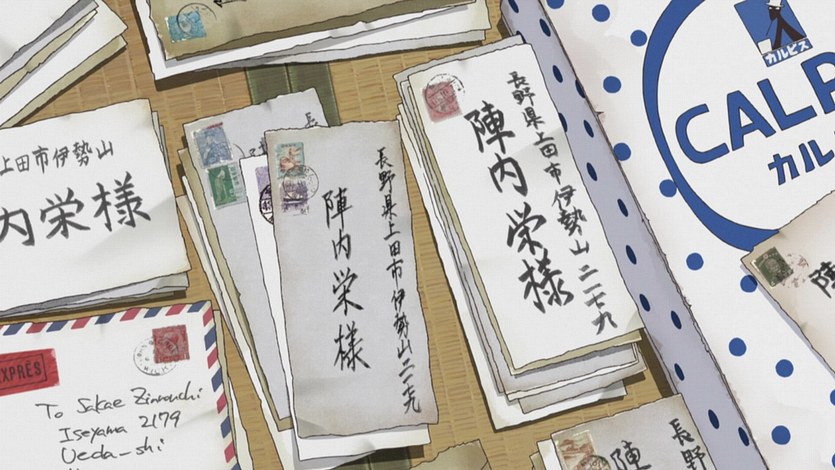 上田市伊勢山
内栄様
長野県上田市伊勢山二一七九
陣内栄様
長野県上田市伊勢山二一七九
陣内栄様
カルピス
CALP
カル
EXPRÈS
To Sakae Zinnouchi
Iseyama 2179
Ueda-shi
長野
陣
陣